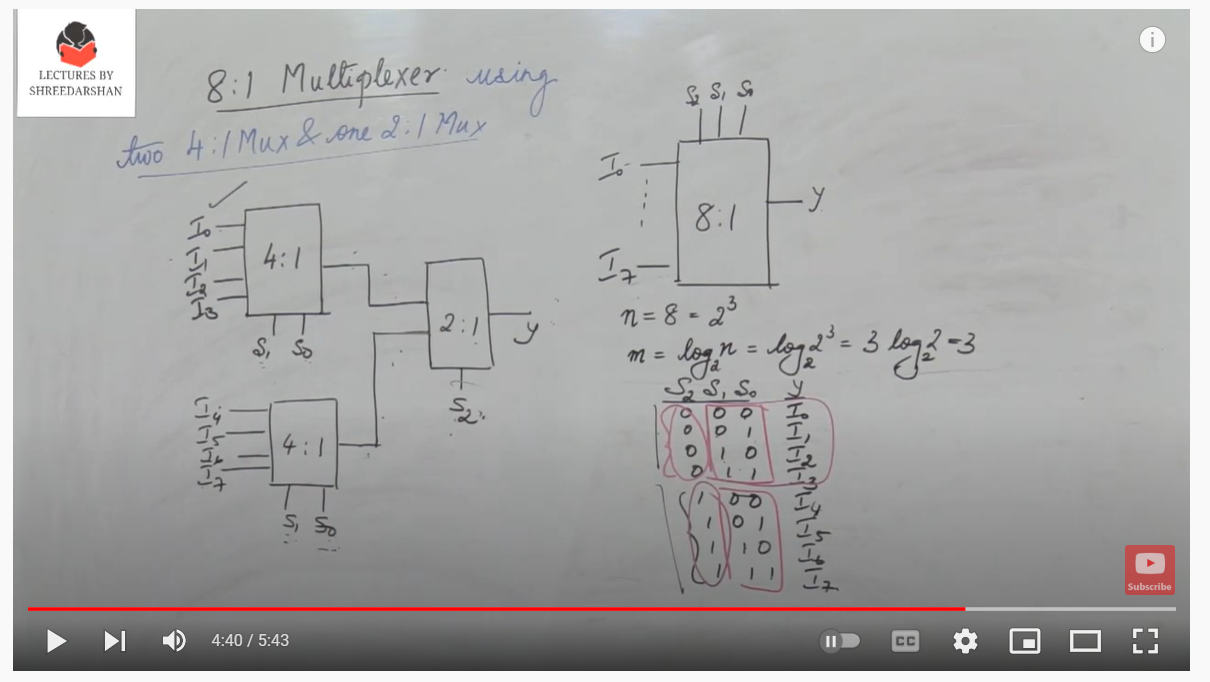 LECTURES BY
SHREEDARSHAN
8:1 Multiplexer using
two 4:1 Mux & one 2:1 Mux
I₀
I₁
I₂
I₃
4:1
S₁ S₀
I₄
I₅
I₆
I₇
4:1
S₁ S₀
2:1
S₂
y
S₂ S₁ S₀
I₀
I₇
8:1
y
n = 8 = 2³
m = log₂n = log₂2³ = 3 log₂2 = 3
S₂ S₁ S₀ Y
0 0 0 I₀
0 0 1 I₁
0 1 0 I₂
0 1 1 I₃
1 0 0 I₄
1 0 1 I₅
1 1 0 I₆
1 1 1 I₇
i
Subscribe
4:40 / 5:43
CC